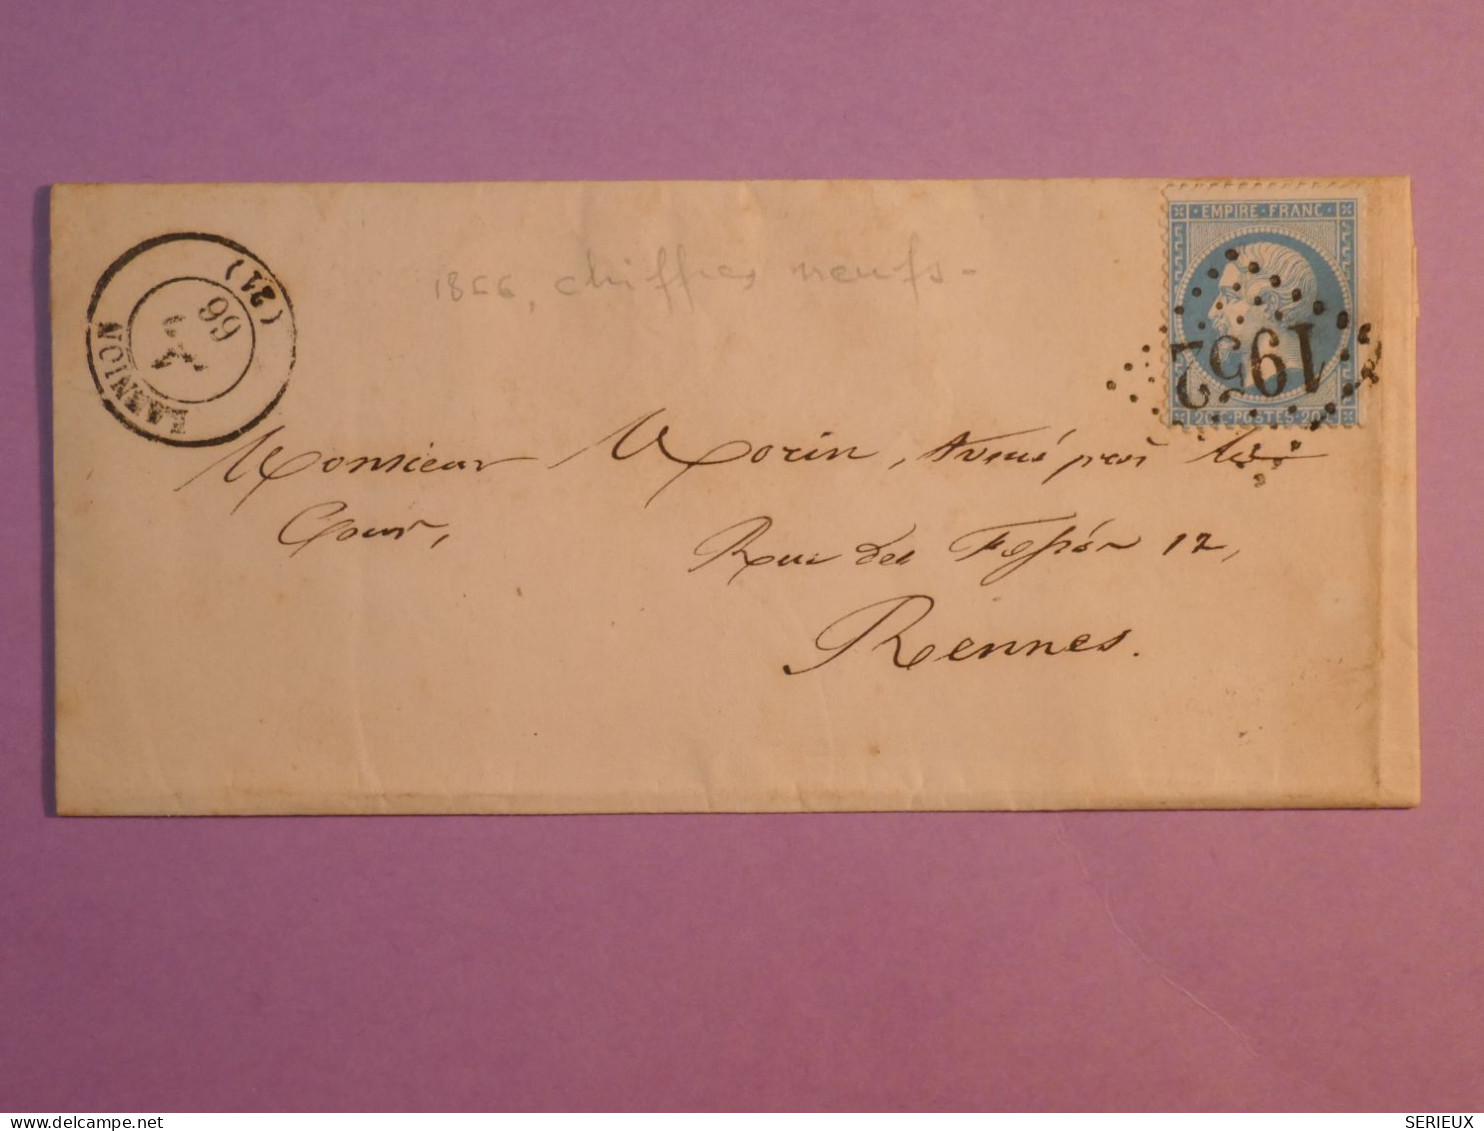 EMPIRE · FRANC ·
1952
20 C · POSTES · 20 C
LANNION
(21)
66
1866, chiffres neufs -
Monsieur Morin, Avoué près la
Cour,
Rue des Fossés 12,
Rennes.
SERIEUX
www.delcampe.net